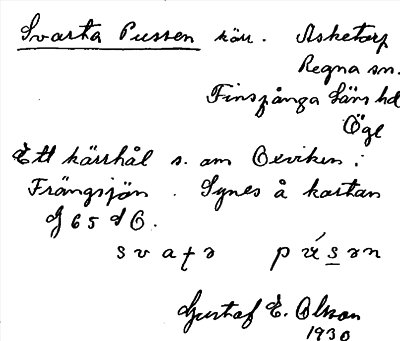 Svarta Pussen kärr. Asketorp
Regna sn.
Finspånga läns hd
Ögl
Ett kärrhål s. om Oxviken i
Frängsjön. Synes å kartan
G 65 d O.
Gustaf E. Olsson
1930